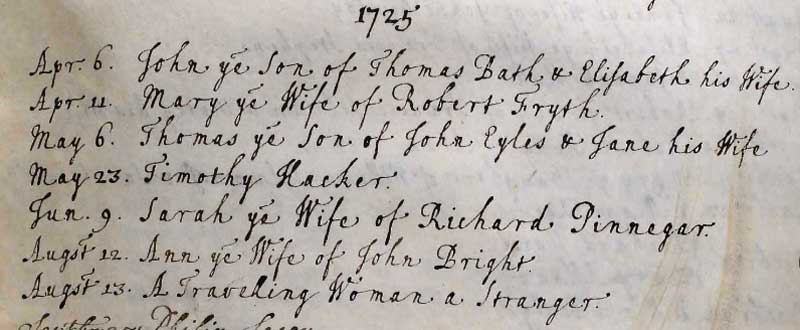 1725
Apr. 6. John ye Son of Thomas Bath & Elisabeth his Wife.
Apr. 11. Mary ye Wife of Robert Fryth.
May 6. Thomas ye Son of John Eyles & Jane his Wife
May 23. Timothy Hacker.
Jun. 9. Sarah ye Wife of Richard Pinnegar.
Augst 12. Ann ye Wife of John Bright.
Augst 13. A Traveling Woman a Stranger.
Philip